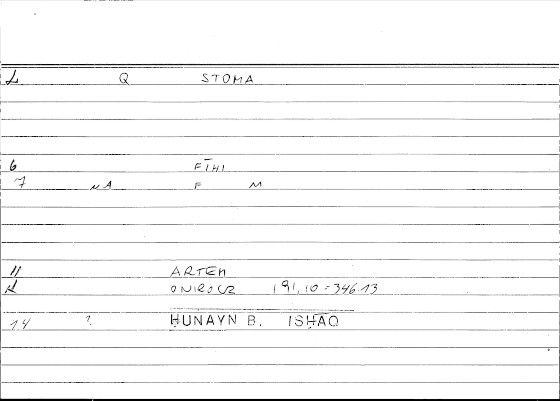 Q STOMA
6 FĪHI
7 NA F M
11 ARTEM
ONIROCR 191,10 = 346.13
14 ? ḤUNAYN B. ISḤĀQ